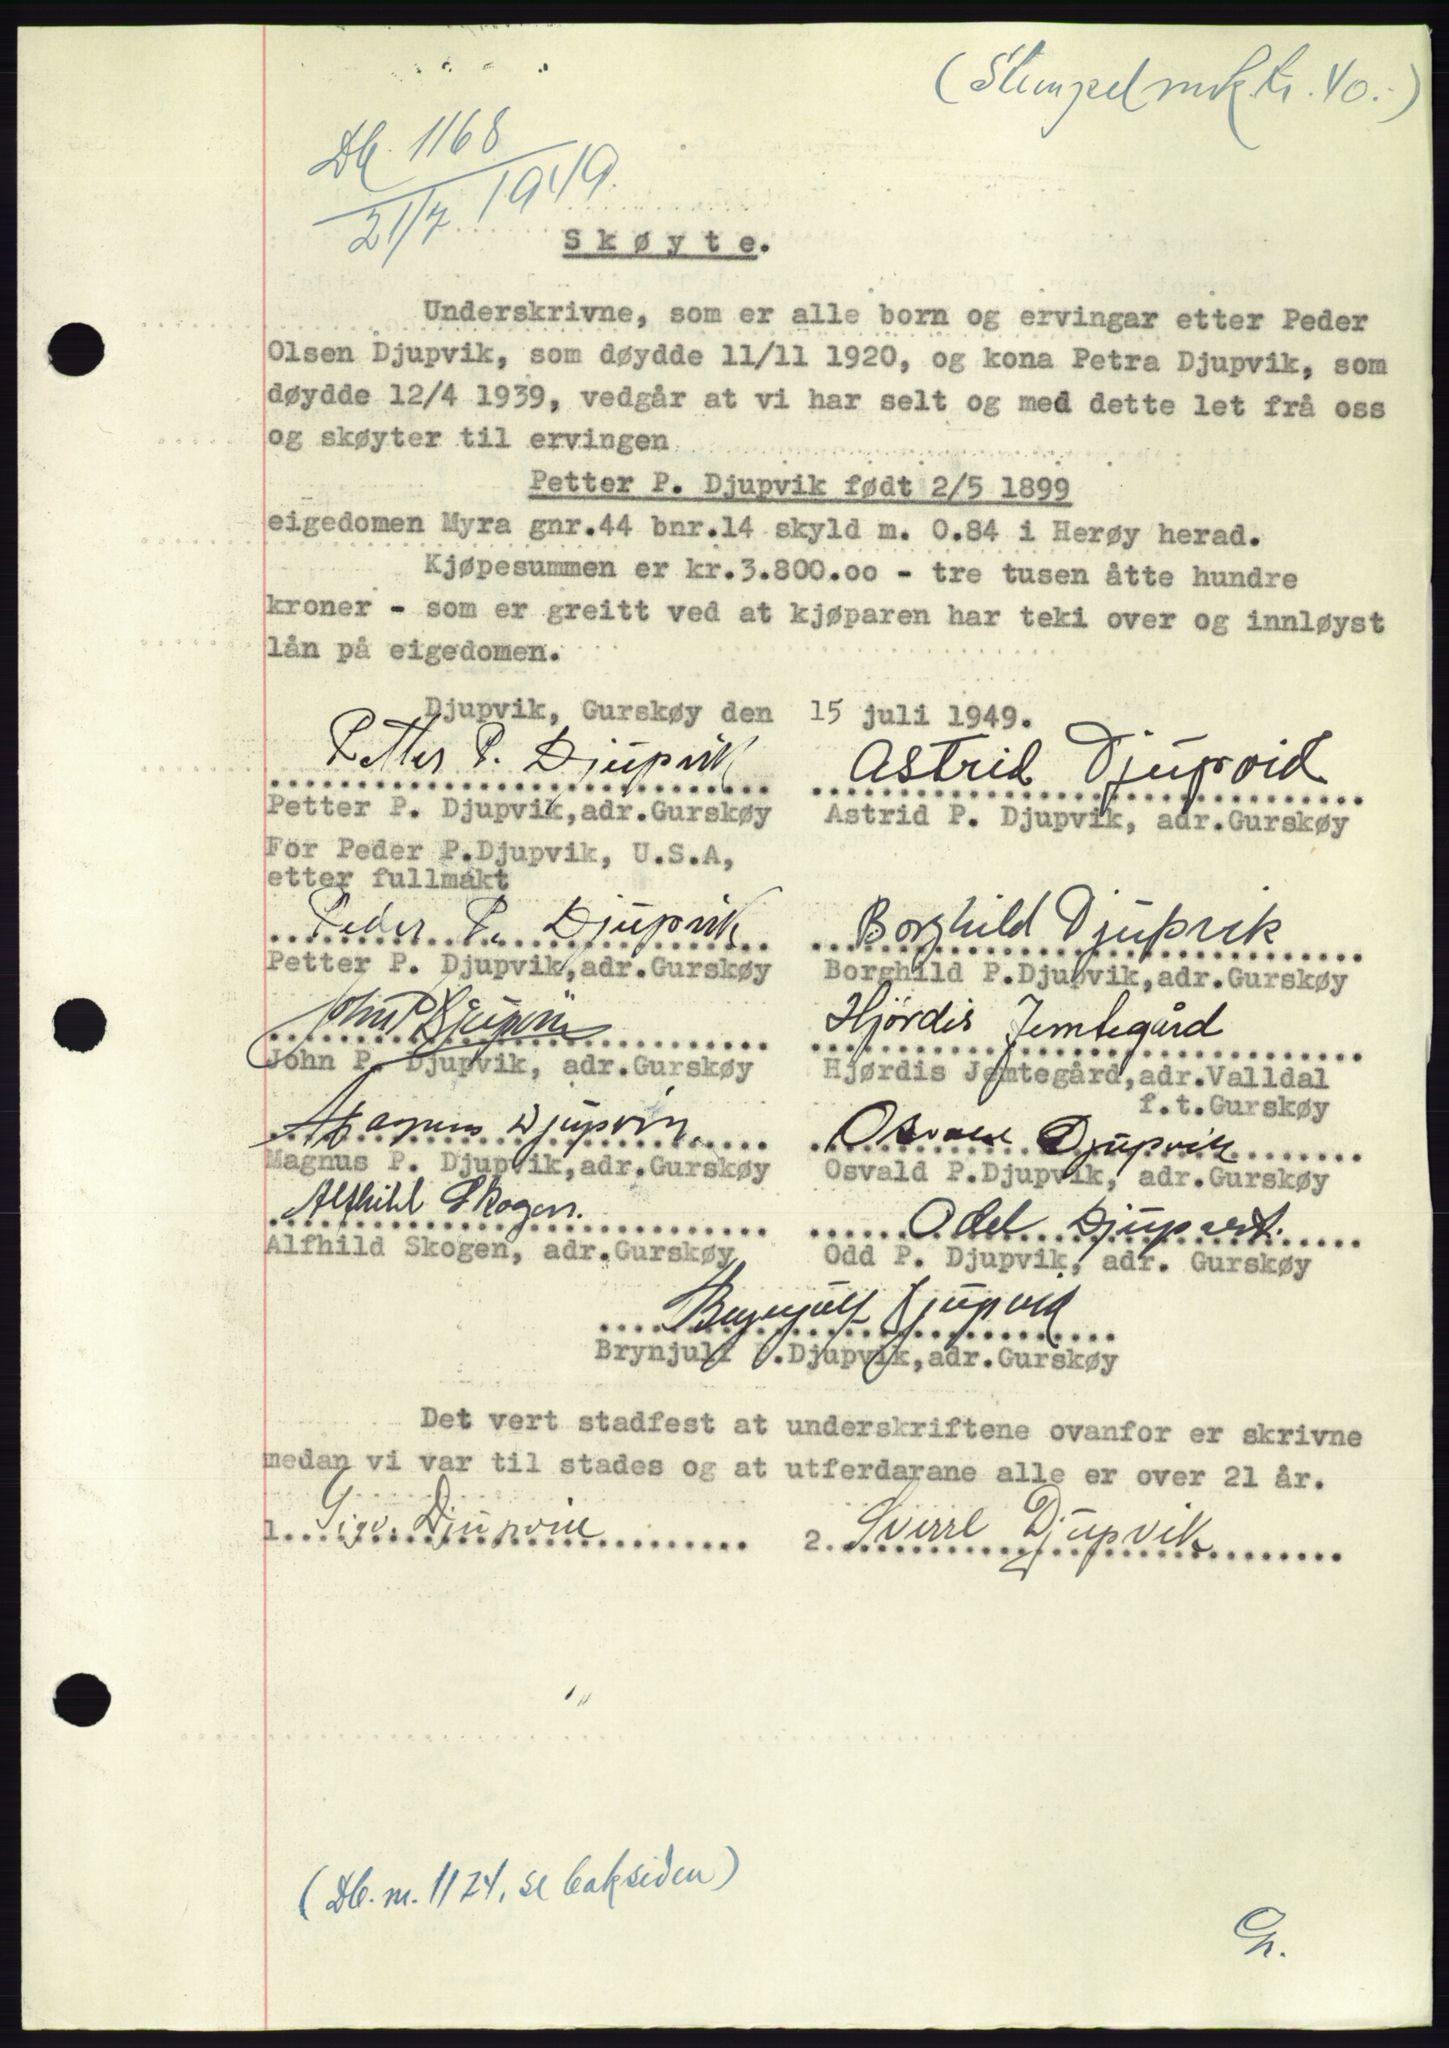 (Stempelmrk. kr. 40.-)
Db. 1168
21/7 1949.
Skøyte.
Underskrivne, som er alle born og ervingar etter Peder
Olsen Djupvik, som døydde 11/11 1920, og kona Petra Djupvik, som
døydde 12/4 1939, vedgår at vi har selt og med dette let frå oss
og skøyter til ervingen
Petter P. Djupvik født 2/5 1899
eigedomen Myra gnr.44 bnr.14 skyld m. 0.84 i Herøy herad.
Kjøpesummen er kr.3.800.oo - tre tusen åtte hundre
kroner - som er greitt ved at kjøparen har teki over og innløyst
lån på eigedomen.
Djupvik, Gurskøy den 15 juli 1949.
Petter P. Djupvik Astrid Djupvid
Petter P. Djupvik,adr.Gurskøy Astrid P. Djupvik, adr.Gurskøy
For Peder P.Djupvik, U.S.A,
etter fullmakt
Peder P. Djupvik Borghild Djupvik
Petter P. Djupvik,adr.Gurskøy Borghild P.Djupvik,adr.Gurskøy
John P Djupvik Hjördis Jemtegård
John P. Djupvik, adr.Gurskøy Hjørdis Jemtegård,adr.Valldal
f.t.Gurskøy
Magnus Djupvik. Osvald Djupvik
Magnus P. Djupvik,adr.Gurskøy Osvald P.Djupvik, adr.Gurskøy
Alfhild Skogen. Odd Djupvik.
Alfhild Skogen, adr.Gurskøy Odd P. Djupvik, adr. Gurskøy
Brynjulf Djupvid
Brynjulf P.Djupvik,adr.Gurskøy
Det vert stadfest at underskriftene ovanfor er skrivne
medan vi var til stades og at utferdarane alle er over 21 år.
1. Sigv. Djupvik 2. Sverre Djupvik
(Db. nr. 1124, se baksiden)